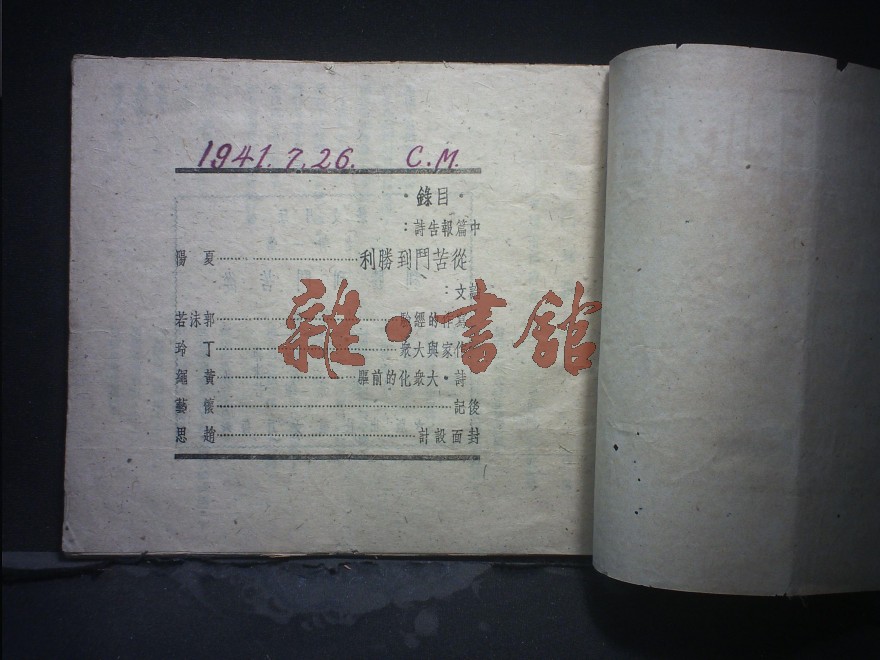 1941.7.26. C.M.
·目錄·
中篇報告詩:
從苦鬥到勝利……夏陽
文:
作的經驗……郭沫若
作家與大衆……丁玲
詩·大衆化的前驅……黃繩
後記……懷藝
封面設計……趙思
雜·書館